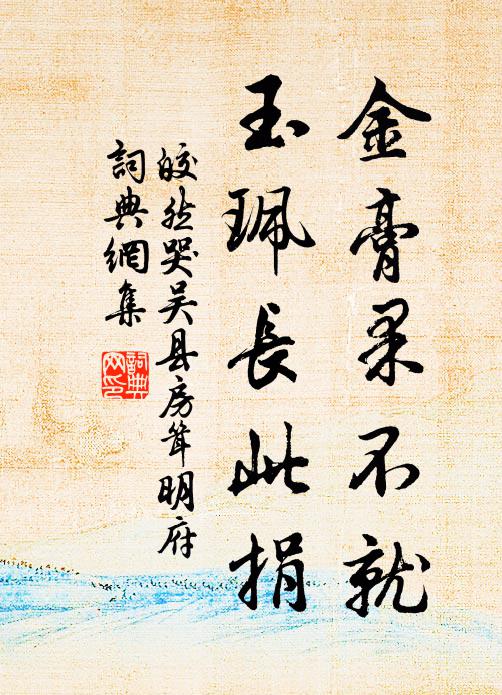 金膏果不就
玉珮長此捐
皎然哭吴县房耸明府
詞典網集
詞典网印